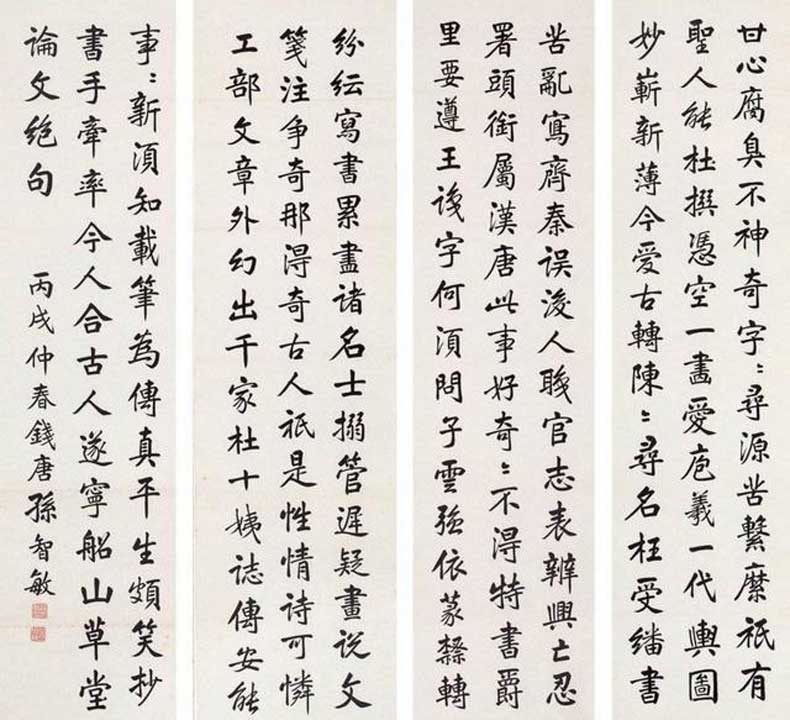 甘心腐臭不神奇字〻尋源苦繫縻祇有
聖人能杜撰憑空一畫愛庖羲一代輿圖
妙嶄新薄今愛古轉陳〻尋名枉受繙書
苦亂寫齊秦誤後人職官志表辨興亡忍
署頭銜屬漢唐此事好奇〻不得特書爵
里要遵王識字何須問子雲強依篆隸轉
紛紜寫書累盡諸名士搦管遲疑畫說文
箋注爭奇那得奇古人祇是性情詩可憐
工部文章外幻出千家杜十姨誌傳安能
事〻新須知載筆為傳真平生頗笑抄
書手牽率今人合古人遂寧船山草堂
論文絕句
丙戌仲春錢唐孫智敏